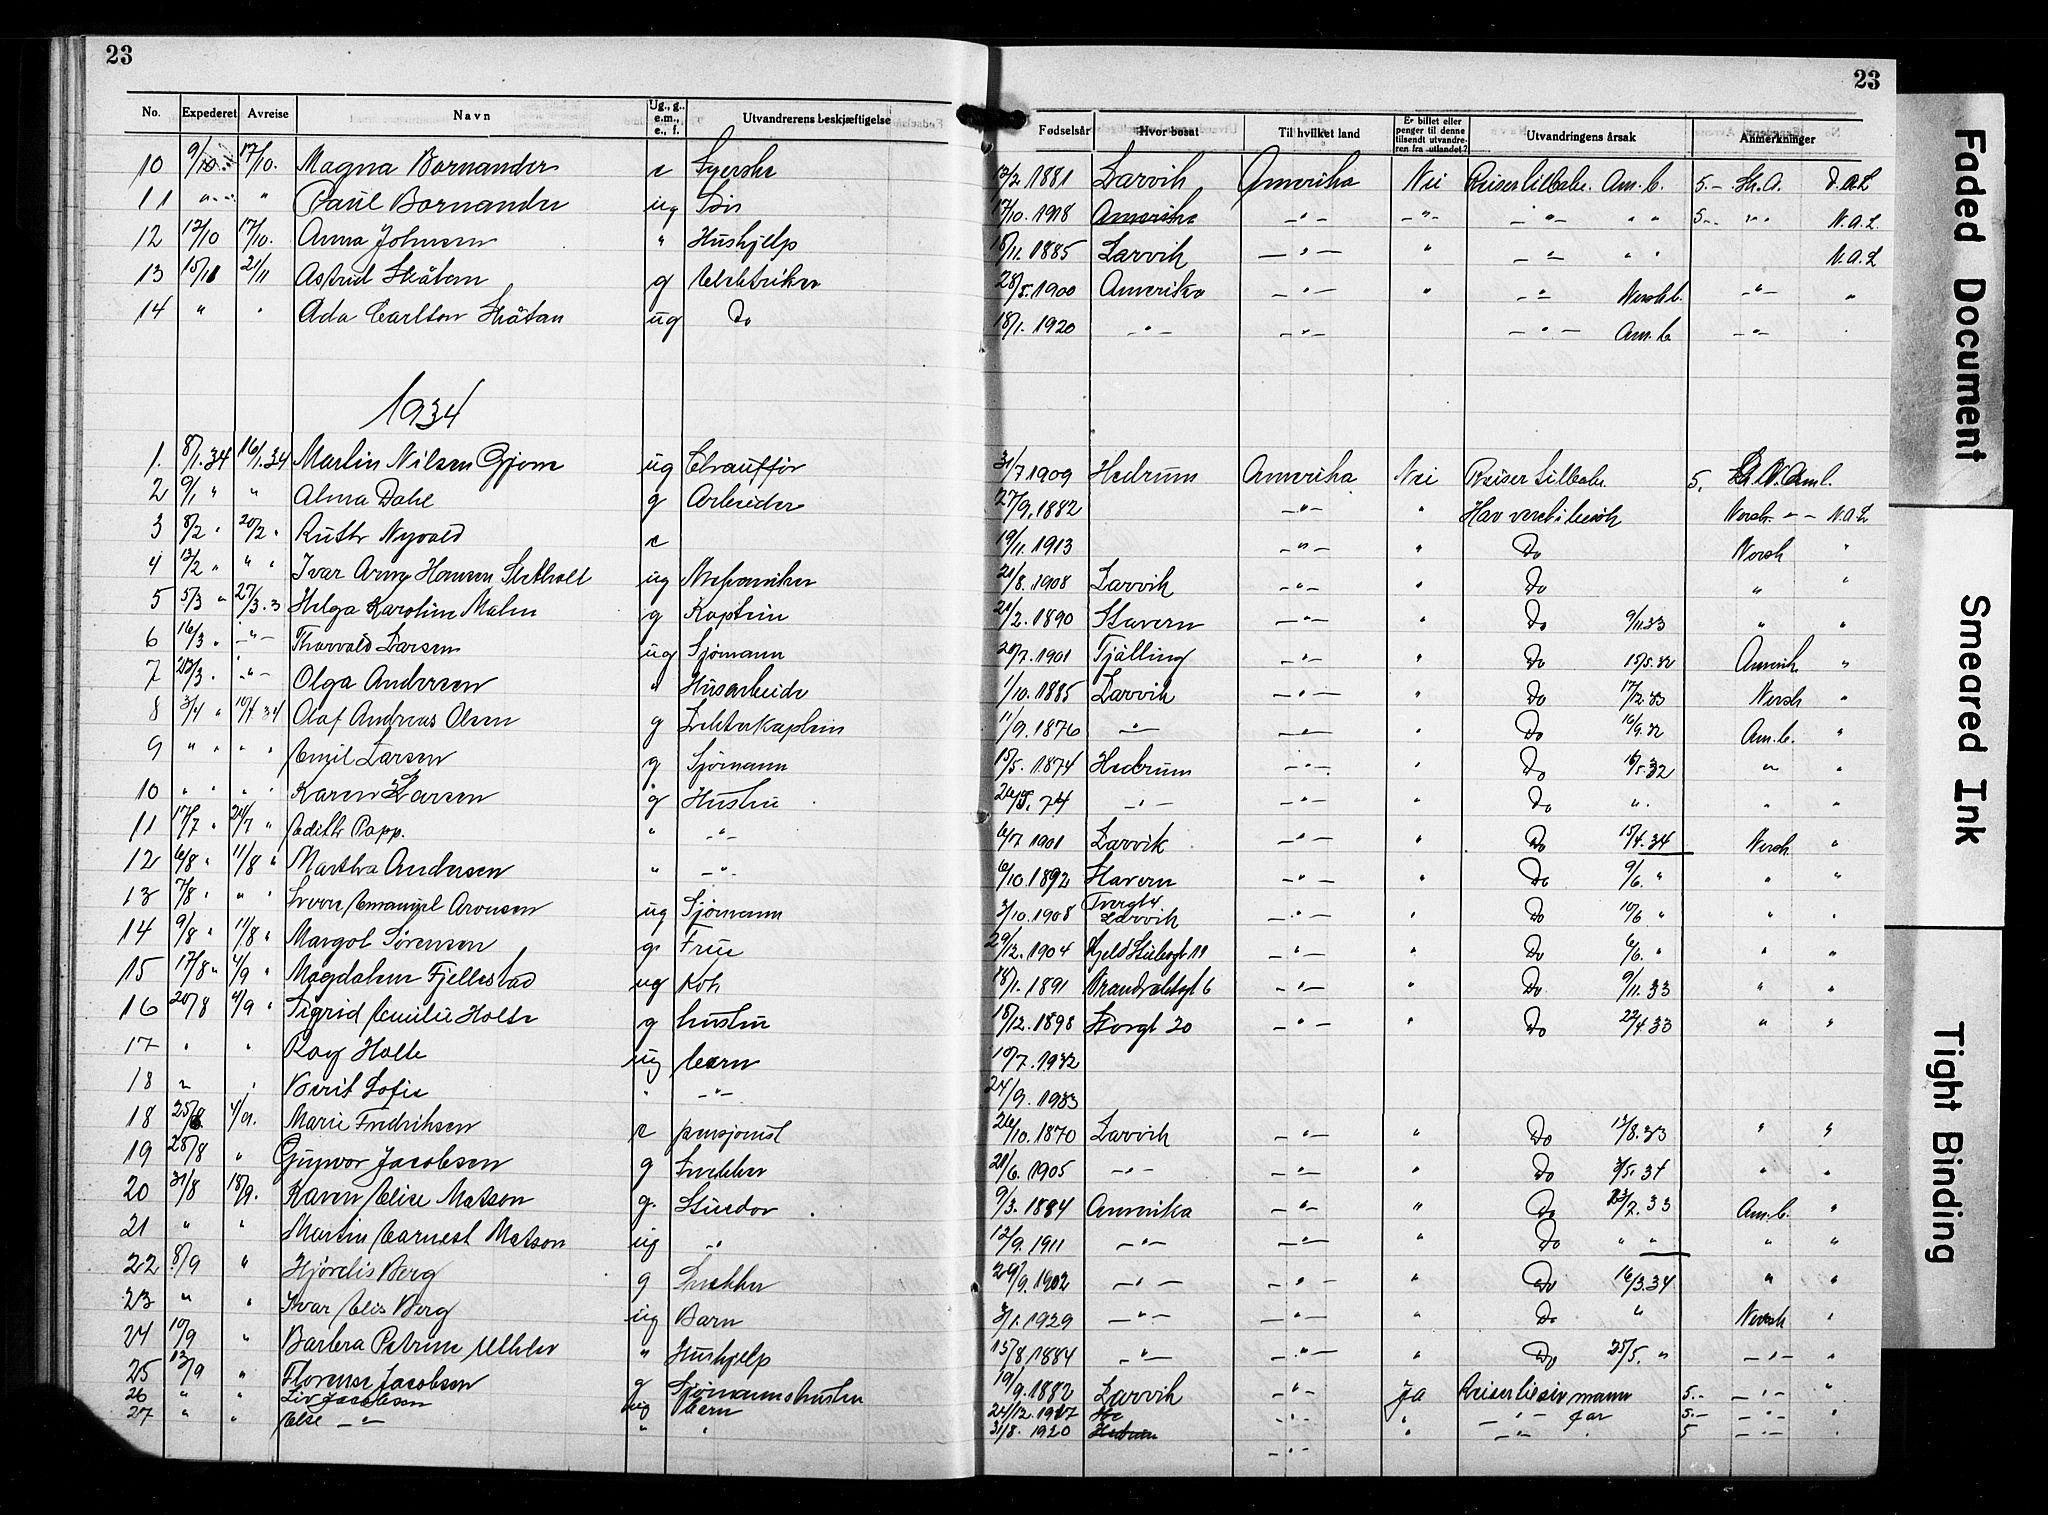 23
23
No. Expederet Avreise Navn Ug., g., e.m., e., f. Utvandrerens beskjæftigelse Fødselsår Hvor bosat Til hvilket land Er billet eller penger til denne tilsendt utvandreren fra utlandet? Utvandringens årsak Anmerkninger
10 9/10 17/10. Magna Bornander e Syerske 12/2 1881 Larvik Amerika Nei Reiser tilbake. Am. b. 5.- N.A.L
11 " " Paul Bornander ug Søn 17/10. 1918 Amerika -"- -"- -"- " " 5-- " N.A.L.
12 12/10 17/10. Anna Johnsen " Hushjelp 18/11. 1885 Larvik -"- " -"- " " N.A.L
13 15/11 21/11 Astrid Skåtan g 28/5. 1900 Amerika -"- " -"- Norsk b. -"- "
14 " " Ada Carlton Skåtan ug Do 18/1. 1920 -"- -"- -"- Am. b -"-
1934
1. 8/1.34 16/1.34 Martin Nilsen Gjone ug Chauffør 31/7 1909 Hedrum Amerika Nei Reiser tilbake 5.
2 9/1 " " Alma Dahl g Arbeider 27/9. 1882 -"- " Har vært i besøk Norsk -"- N.A.L
3 8/2 " 20/2 " Ruth Nyvold e 19/11. 1913 -"- " Do Norsk "
4 13/2 " " " Ivar Arne Hansen ug Mekaniker 21/8. 1908 Larvik -"- " Do " "
5 5/3 " 27/3.3 Helga Karoline Malm g Kaptein 21/2. 1890 Stavern -"- " Do 9/11.33 " "
6 16/3 " -"- Thorvald Larsen ug Sjømann 20/7. 1901 Tjølling -"- " Do 15/5.32 Amerik. "
7 23/3 " -"- Olga Andersen " Husarbeide 1/10. 1885 Larvik -"- " Do 17/12.33 Norsk "
8 3/4 " 10/4 34 Olaf Andreas Olsen g 11/9. 1876 -"- -"- " Do 16/9.32 Am. b. "
9 " " " " Emil Larsen g Sjømann 15/5. 1874 Hedrum -"- " Do 16/5.32 " "
10 " " " " Karen Larsen g Hustru 74 -"- -"- " Do " " "
11 17/7 " 24/7 " Edith Popp. " -"- 6/7 1901 Larvik -"- " Do 15/4.34 Norsk "
12 6/8 " 11/8 " Martha Andersen " -"- 6/10. 1892 Stavern -"- " Do 9/6. " " "
13 7/8 " " " Emanuel Aronsen ug Sjømann 3/10. 1908 Torvgt 4 Larvik -"- " Do 10/6 " " "
14 9/8 " 11/8 " Margot Sørensen g Frue 29/12. 1904 -"- " Do 6/6. " " "
15 17/8 " 4/9 " Magdalene Fjellestad ug Kok 18/1. 1891 -"- " Do 9/11.33 " "
16 20/8 4/9 " Sigrid Emilie Holte g hustru 18/12. 1898 Storgt 20 -"- " Do 22/4 33 " "
17 " " Roy Holte ug barn 10/7. 1932
18 " " Berit Sofie " -"- 24/9. 1933
18 25/8 4/9. Marie Fredriksen e pensjonist 26/10. 1870 Larvik -"- " Do 13/8.33 " "
19 28/8 " Gunvor Jacobsen g 21/6. 1905 -"- -"- " Do 3/5.34 " "
20 31/8 18/9. Karen Elise Matson g. 9/3. 1884 Amerika -"- " Do 23/2.33 Am. b. "
21 " " Martin Earnest Matson ug -"- 12/9. 1911 -"- -"- " Do " " " "
22 8/9 " Hjørdis Berg g Snekker 29/9. 1902 -"- -"- " Do 16/3.34 " "
23 " " Ivar Elis Berg ug Barn 3/1. 1929 -"- -"- " Do " Norsk "
24 10/9 " Barbra Petrine " Hushjelp 15/8. 1884 -"- -"- " Do 25/5. " -"- "
25 13/9 " Florense Jacobsen g Sjømannshustru 19/9. 1882 Larvik -"- Ja Reiser til sin mann 5.- -"- "
26 " " Liv Jacobsen ug barn 24/12. 1917 -"- " -"- far 5.- -"- "
27 " " Else -"- " " 31/8. 1920 Hedrum -"- " -"- " 5 -"- "
Faded Document
Smeared Ink
Tight Binding